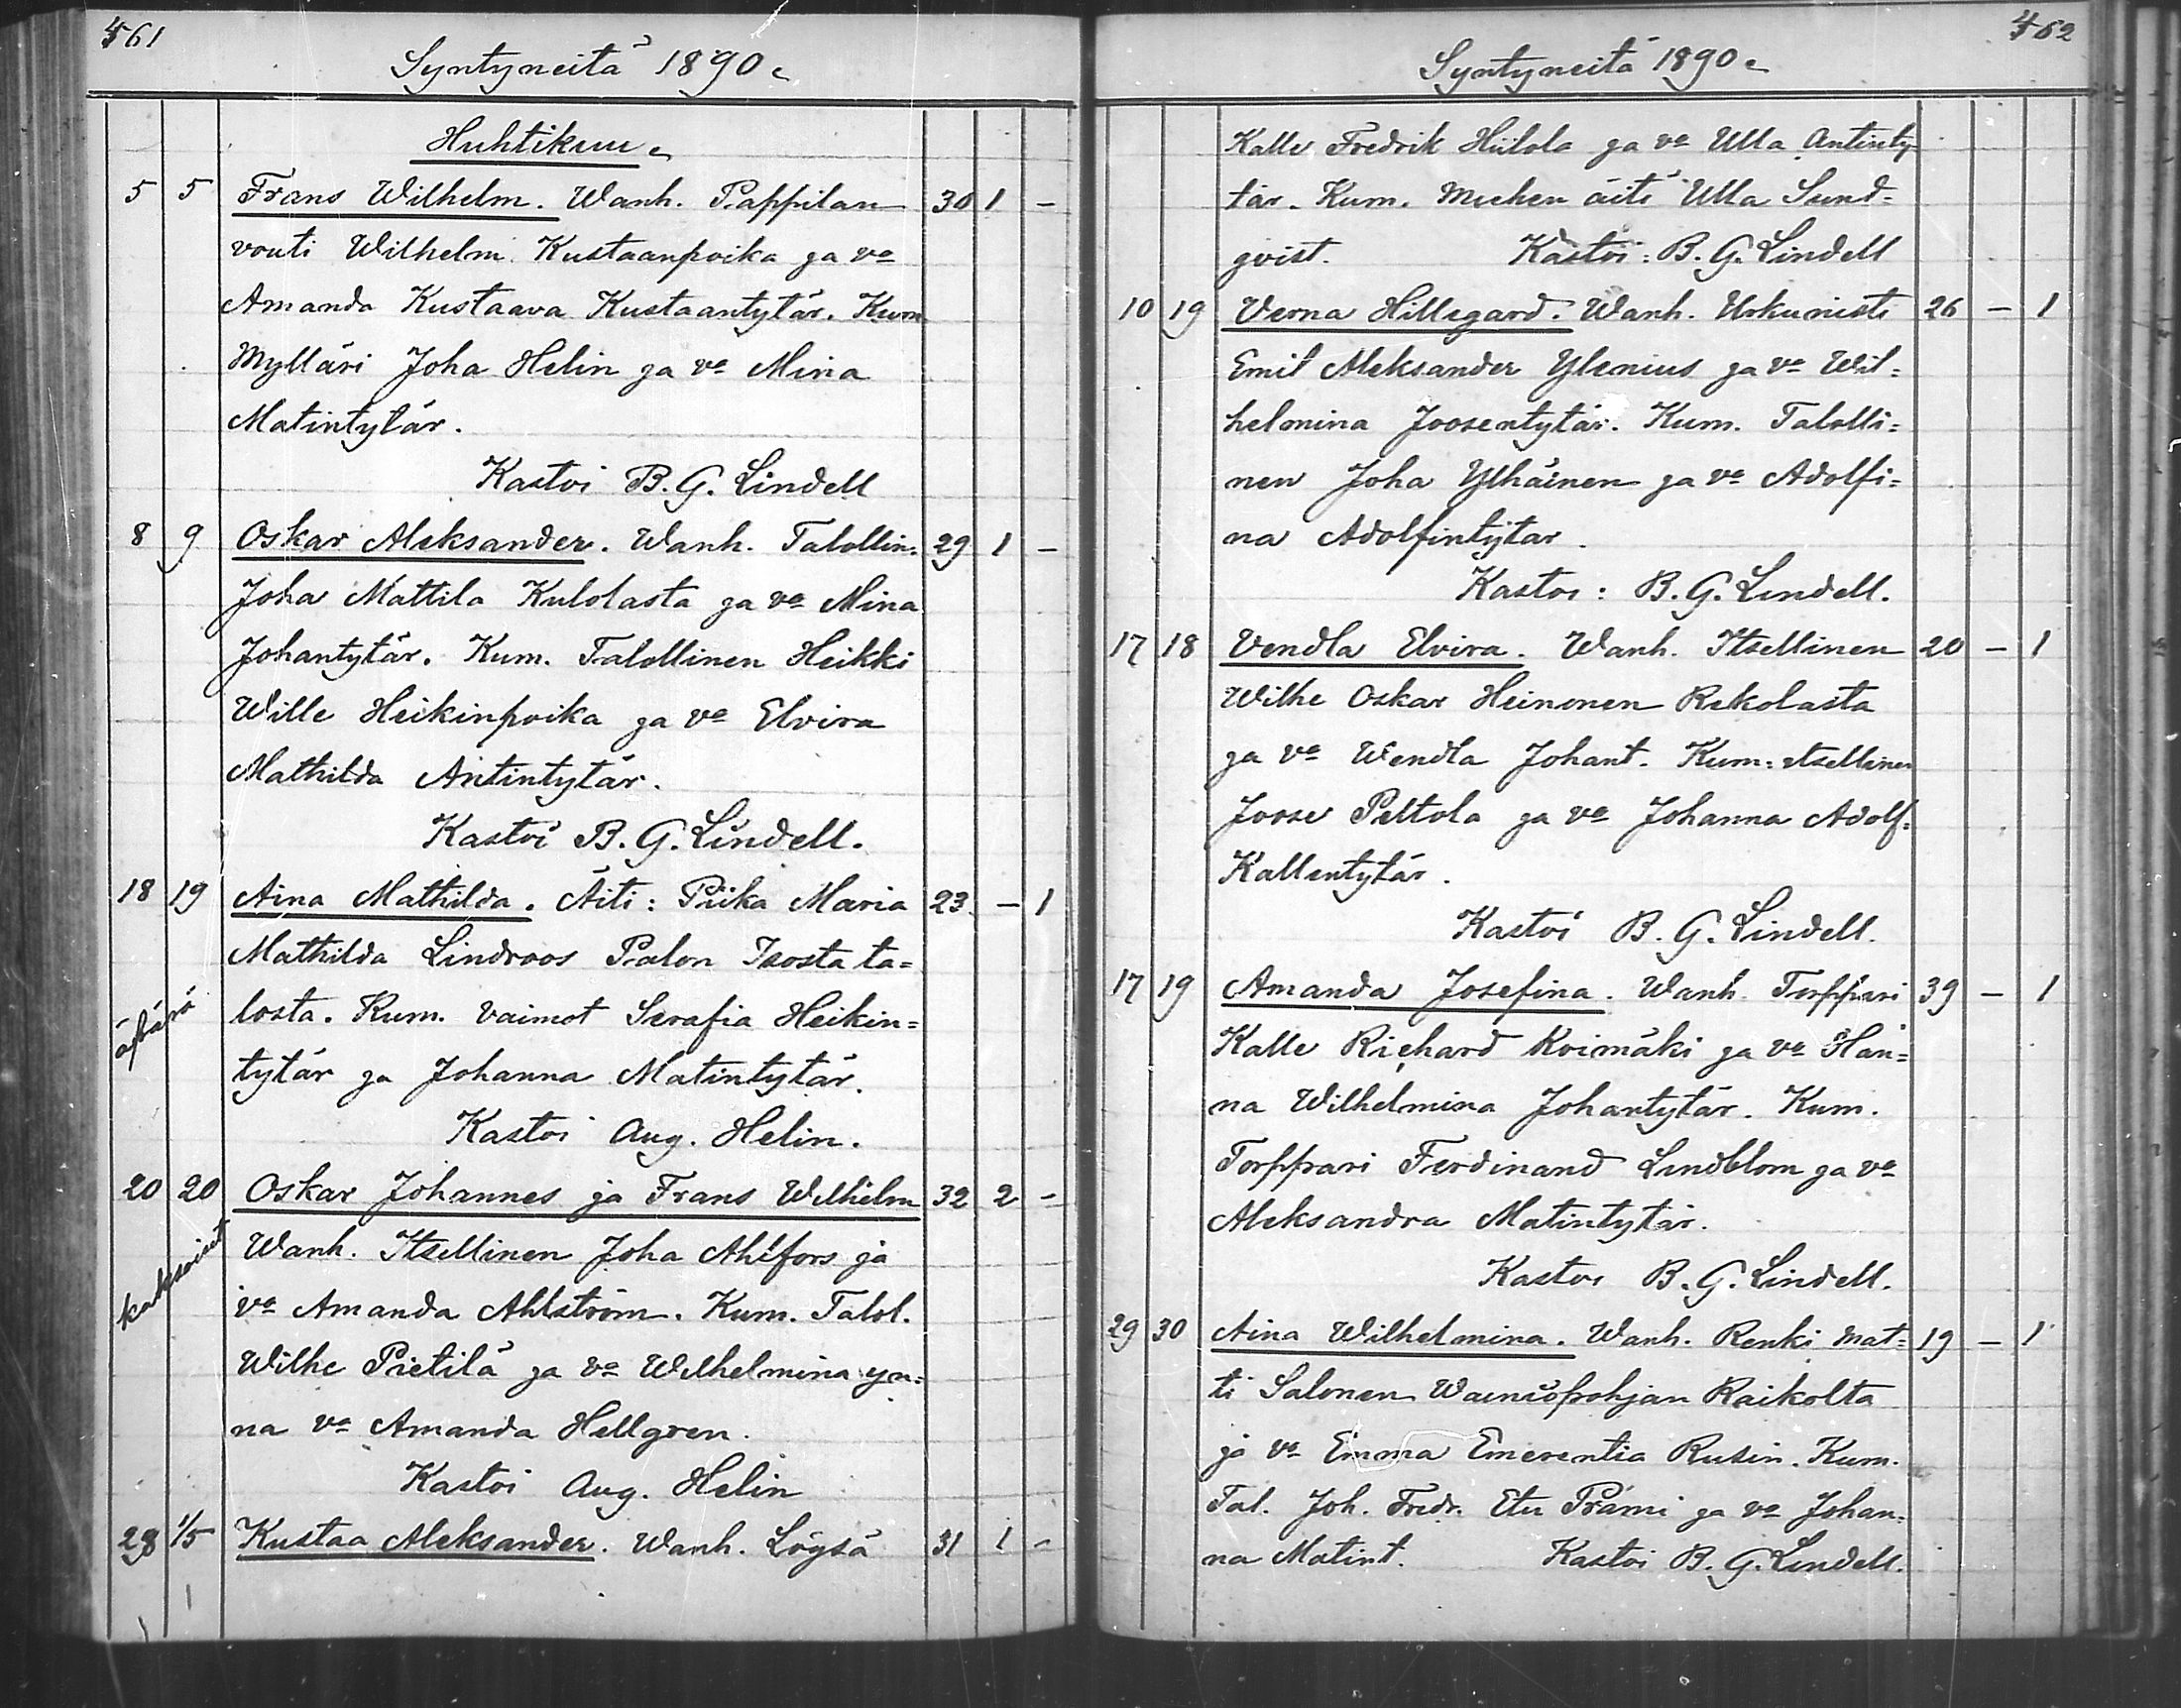 461
Syntyneitä 1890.
Huhtikuu.
5 5 Frans Wilhelm. Wanh. Pappilan 30 1 -
vouti Wilhelm Kustaanpoika ja va
Amanda Kustaava Kustaantytär. Kum.
Mylläri Joha Helin ja va Mina
Matintytär.
Kastoi B. G. Lindell
8 9 Oskar Aleksander. Wanh. Talollin. 29 1 -
Joha Mattila Kulolasta ja va Mina
Johantytär. Kum. Talollinen Heikki
Wille Heikinpoika ja va Elvira
Mathilda Antintytär.
Kastoi B. G. Lindell.
18 19 Aina Mathilda. Äiti: Piika Maria 23 - 1
Mathilda Lindroos Palon Isosta ta=
äpärä losta. Kum. Vaimot Serafia Heikin=
tytär ja Johanna Matintytär.
Kastoi Aug. Helin.
20 20 Oskar Johannes ja Frans Wilhelm 32 2 -
kaksoiset Wanh. Itsellinen Joha Ahlfors ja
va Amanda Ahlström. Kum. Talol.
Wilhe Pietilä ja va Wilhelmina yn=
na va Amanda Hellgren.
Kastoi Aug. Helin
28 1/5 Kustaa Aleksander. Wanh. Löysä 31 1 -
462
Syntyneitä 1890.
Kalle Fredrik Hiilola ja va Ulla Antinty
tär. Kum. Miehen äiti Ulla Sund=
qvist. Kastoi: B. G. Lindell
10 19 Verna Hillegard. Wanh. Urkunisti 26 - 1
Emil Aleksander Ylenius ja va Wil=
helmina Joosentytär. Kum. Talolli=
nen Joha Ylhäinen ja va Adolfi=
na Adolfintytär.
Kastoi: B. G. Lindell.
17 18 Vendla Elvira. Wanh. Itsellinen 20 - 1
Wilhe Oskar Heinonen Rekolasta
ja va Wendla Johant. Kum: itsellinen
Joose Peltola ja va Johanna Adolf.
Kallentytär.
Kastoi B. G. Lindell.
17 19 Amanda Josefina. Wanh. Torppari 39 - 1
Kalle Richard Koimäki ja va Han=
na Wilhelmina Johantytär. Kum.
Torppari Ferdinand Lindblom ja va
Aleksandra Matintytär.
Kastoi B. G. Lindell.
29 30 Aina Wilhelmina. Wanh. Renki Mat= 19 - 1
ti Salonen Wainiopohjan Raikolta
ja va Emma Emerentia Rusin. Kum.
Tal. Joh. Fredr. Etu Prami ja va Johan=
na Matint. Kastoi B. G. Lindell.